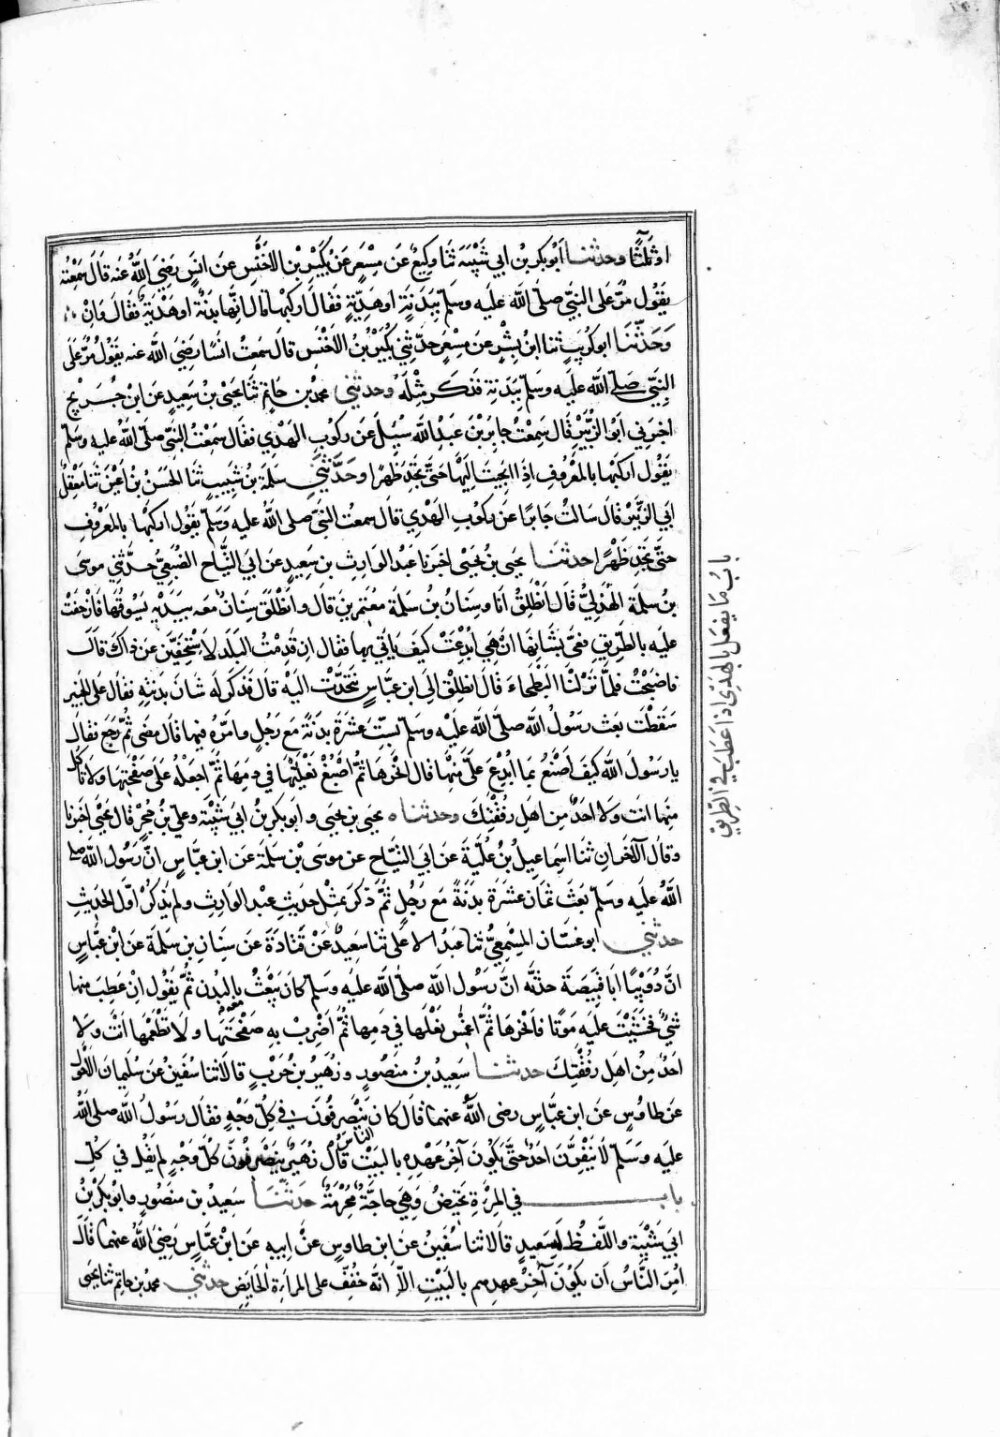 اوثلاثا وحدثنا ابو بكر بن ابي شيبة ثنا وكيع عن مسعر عن بكير بن الاخنس عن انس رضي الله عنه قال سمعته
يقول مر على النبي صلى الله عليه وسلم ببدنة او هدية فقال اركبها قال انها بدنة او هدية فقال وان
وحدثنا ابو كريب ثنا ابن بشر عن مسعر حدثني بكير بن الاخنس قال سمعت انسا رضي الله عنه يقول مر على
النبي صلى الله عليه وسلم ببدنة فذكر مثله وحدثني محمد بن حاتم ثنا يحيى بن سعيد عن ابن جريج
اخبرني ابو الزبير قال سمعت جابر بن عبد الله سئل عن ركوب الهدي فقال سمعت النبي صلى الله عليه وسلم
يقول اركبها بالمعروف اذا الجئت اليها حتى تجد ظهرا وحدثني سلمة بن شبيب ثنا الحسن بن اعين ثنا معقل
ابي الزبير قال سالت جابرا عن ركوب الهدي قال سمعت النبي صلى الله عليه وسلم يقول اركبها بالمعروف
حتى تجد ظهرا حدثنا يحيى بن يحيى اخبرنا عبد الوارث بن سعيد عن ابي التياح الضبعي حدثني موسى
بن سلمة الهذلي قال انطلقت انا وسنان بن سلمة معتمرين قال وانطلق سنان معه ببدنة يسوقها فازحفت
عليه بالطريق فعي بشانها ان هي ابدعت كيف ياتي بها فقال ان قدمت البلد لاستحفين عن ذاك قال
فاضحيت فلما نزلنا البطحاء قال انطلق الى ابن عباس نتحدث اليه قال فذكر له شان بدنته فقال على الخبير
سقطت بعث رسول الله صلى الله عليه وسلم بست عشرة بدنة مع رجل وامره فيها قال مضى ثم رجع فقال
يا رسول الله كيف اصنع بما ابدع علي منها قال انحرها ثم اصبغ نعليها في دمها ثم اجعله على صفحتها ولا تاكل
منها انت ولا احد من اهل رفقتك وحدثناه يحيى بن يحيى وابو بكر بن ابي شيبة وعلي بن حجر قال يحيى اخبرنا
وقال الآخران ثنا اسماعيل بن علية عن ابي التياح عن موسى بن سلمة عن ابن عباس ان رسول الله صلى
الله عليه وسلم بعث ثمان عشرة بدنة مع رجل ثم ذكر بمثل حديث عبد الوارث ولم يذكر اول الحديث
حدثني ابو غسان المسمعي ثنا عبد الاعلى ثنا سعيد عن قتادة عن سنان بن سلمة عن ابن عباس
ان ذويبا ابا قبيصة حدثه ان رسول الله صلى الله عليه وسلم كان يبعث معه بالبدن ثم يقول ان عطب منها
شيء فخشيت عليه موتا فانحرها ثم اغمس نعلها في دمها ثم اضرب به صفحتها ولا تطعمها انت ولا
احد من اهل رفقتك حدثنا سعيد بن منصور وزهير بن حرب قالا ثنا سفين عن سليمان الاحول
عن طاوس عن ابن عباس رضي الله عنهما قال كان الناس ينصرفون في كل وجه فقال رسول الله صلى الله
عليه وسلم لا ينفرن احد حتى يكون آخر عهده بالبيت قال زهير ينصرفون كل وجه لم يقل في كل
باب في المرءة تحيض وهي حاجة محرمة حدثنا سعيد بن منصور وابو بكر بن
ابي شيبة واللفظ لسعيد قالا ثنا سفين عن ابن طاوس عن ابيه عن ابن عباس رضي الله عنهما قال
امر الناس ان يكون آخر عهدهم بالبيت الا انه خفف على المراءة الحايض حدثني محمد بن حاتم ثنا يحيى
باب ما يفعل بالهدي اذا عطب في الطريق